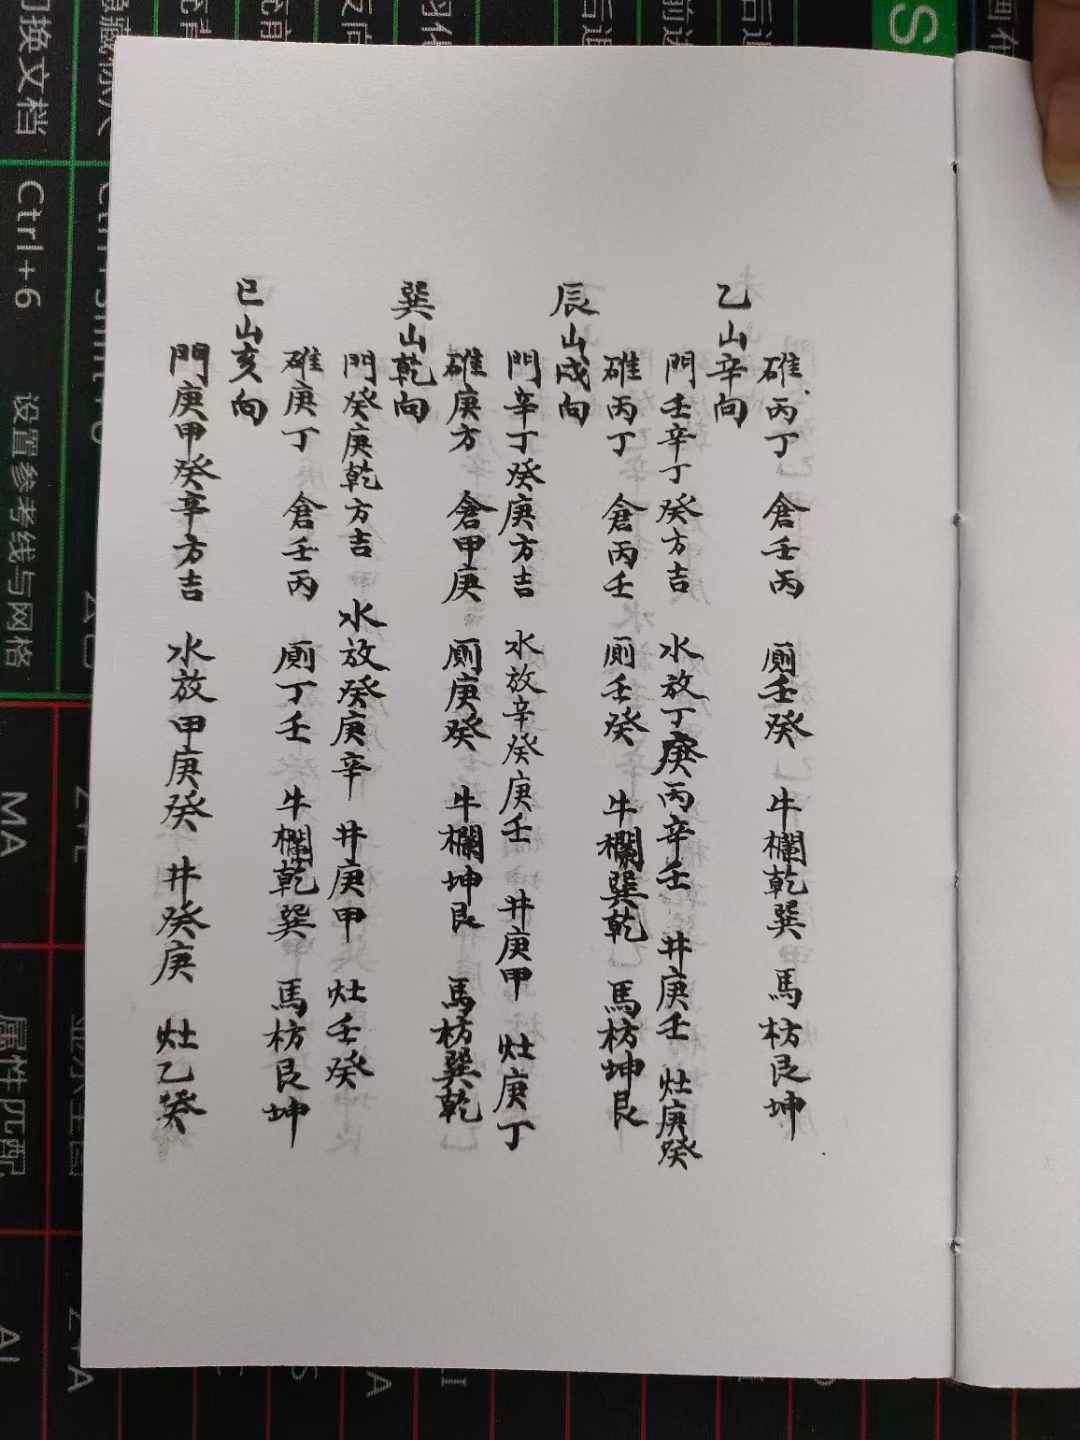 碓丙丁 倉壬丙 廁壬癸 牛欄乾巽 馬枋艮坤
乙山辛向
門壬辛丁癸方吉 水放丁庚丙辛壬 井庚壬 灶庚癸
碓丙丁 倉丙壬 廁壬癸 牛欄巽乾 馬枋坤艮
辰山戍向
門辛丁癸庚方吉 水放辛癸庚壬 井庚甲 灶庚丁
碓庚方 倉甲庚 廁庚癸 牛欄坤艮 馬枋巽乾
巽山乾向
門癸庚乾方吉 水放癸庚辛 井庚甲 灶壬癸
碓庚丁 倉壬丙 廁丁壬 牛欄乾巽 馬枋艮坤
巳山亥向
門庚甲癸辛方吉 水放甲庚癸 井癸庚 灶乙癸
切换文档
Ctrl+6
设置参考线与网格
MA
属性匹配
AL